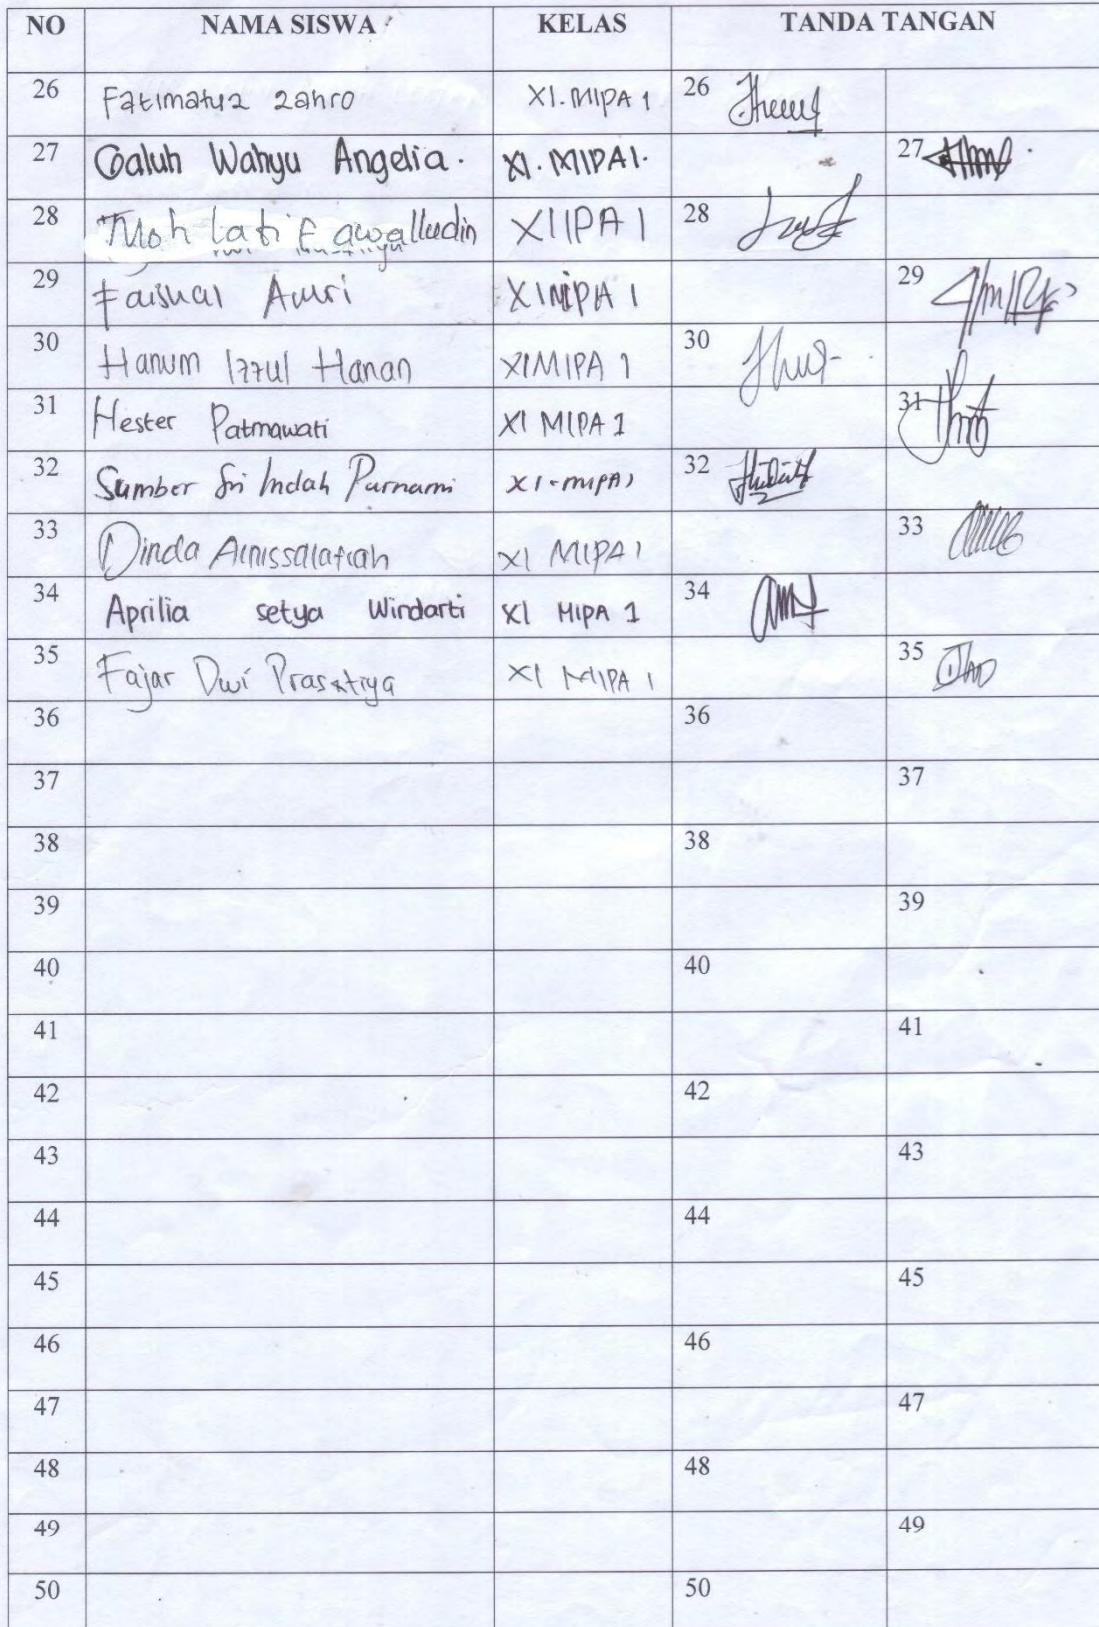 NO NAMA SISWA KELAS TANDA TANGAN
26 Fatimatuz zahro XI.MIPA 1 26
27 Galuh Wahyu Angelia. XI.MIPA1. 27
28 Moh latif awalludin XIIPA 1 28
29 Faisual Amri XIMIPA 1 29
30 Hanum Izzul Hanan XIMIPA 1 30
31 Hester Patmawati XI MIPA 1 31
32 Sumber Sri Indah Purnami XI-MIPA1 32
33 Dinda Ainissalafiah XI MIPA1 33
34 Aprilia setya Windarti XI MIPA 1 34
35 Fajar Dwi XI MIPA 1 35
36 36
37 37
38 38
39 39
40 40
41 41
42 42
43 43
44 44
45 45
46 46
47 47
48 48
49 49
50 50